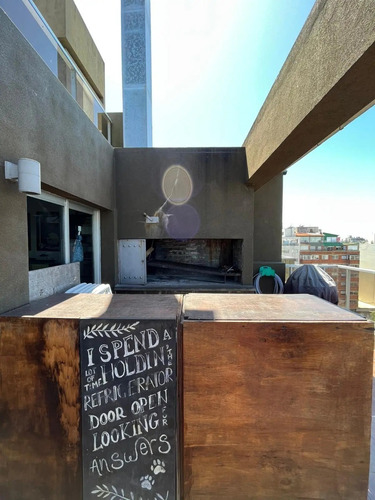 I SPEND A
LOT OF TIME HOLDIN' THE
REFRIGERATOR
DOOR OPEN
LOOKING FOR
ANSWERS